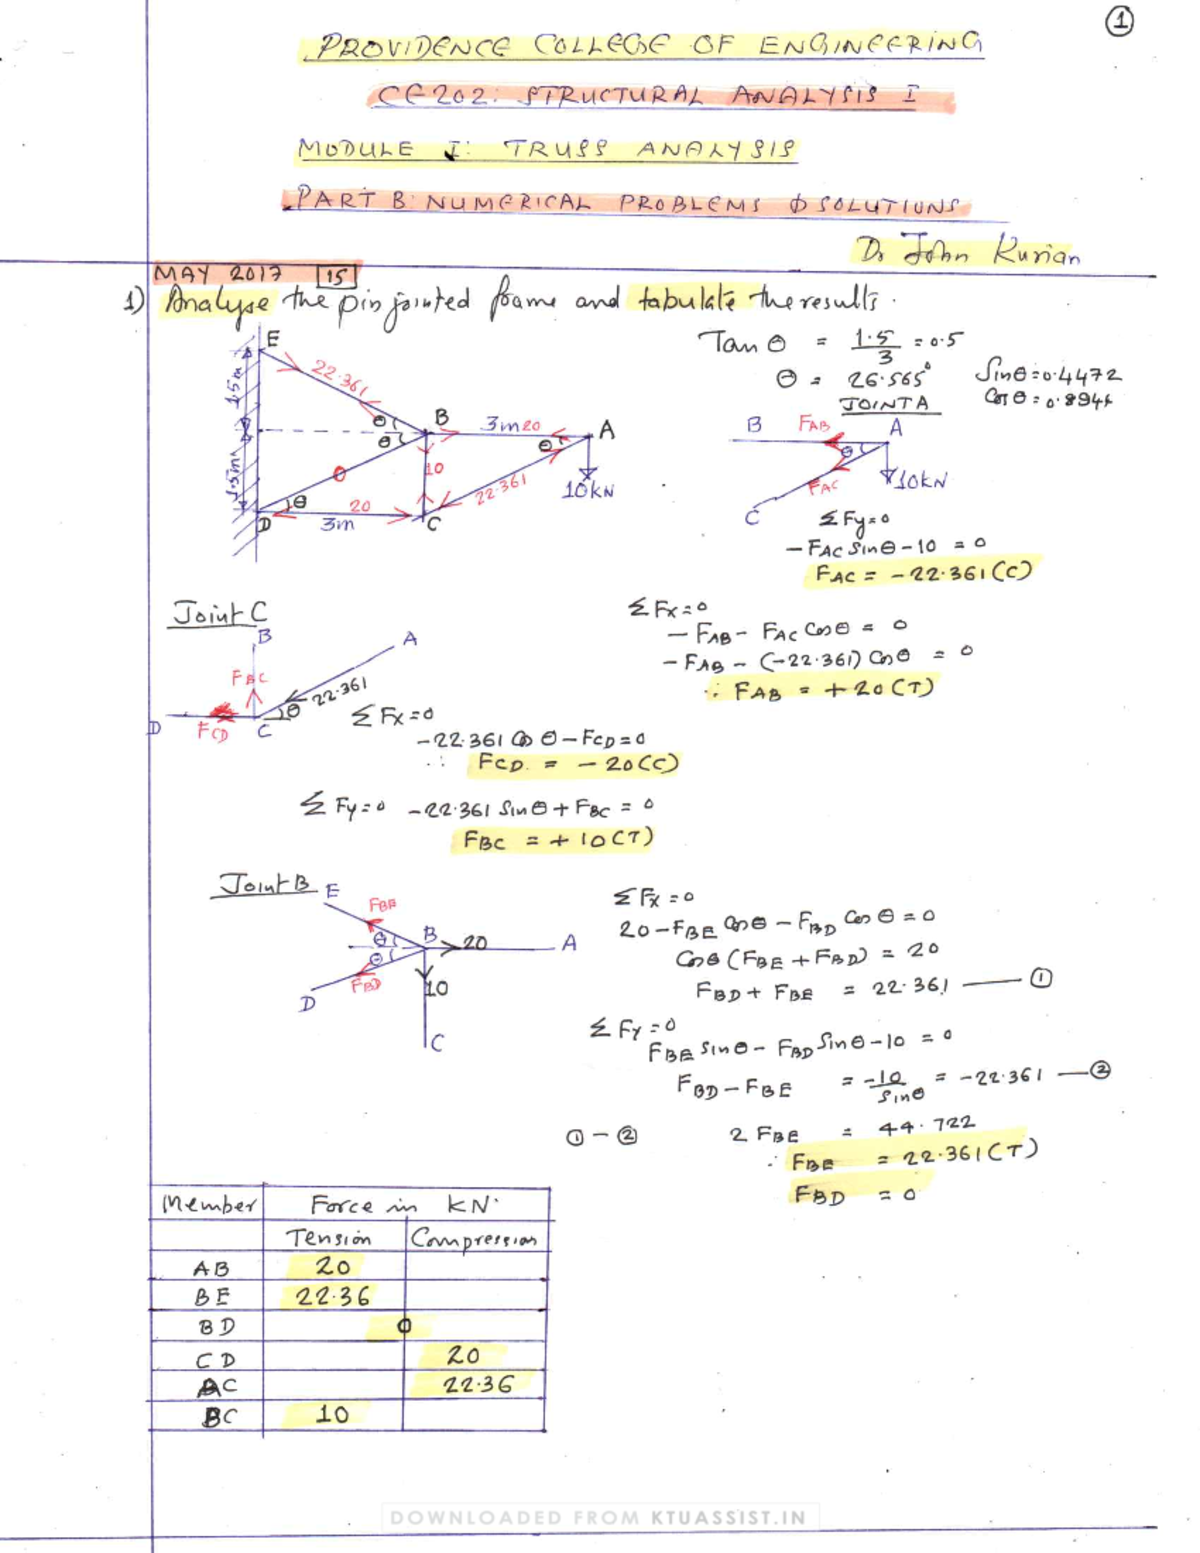 1
PROVIDENCE COLLEGE OF ENGINEERING
CE202: STRUCTURAL ANALYSIS I
MODULE I: TRUSS ANALYSIS
PART B: NUMERICAL PROBLEMS & SOLUTIONS
Dr John Kurian
MAY 2017 15
1) Analyse the pin jointed frame and tabulate the results.
E
1.5m
1.5m
22.361
θ
θ
B
3m 20
θ
A
10kN
0
10
22.361
θ
D
20
3m
C
Tan θ = 1.5/3 = 0.5
θ = 26.565° Sinθ = 0.4472
Cosθ = 0.8944
JOINT A
B FAB A
θ
FAC
10kN
C
ΣFy=0
-FAC Sinθ - 10 = 0
FAC = -22.361 (C)
ΣFx=0
-FAB - FAC Cosθ = 0
-FAB - (-22.361) Cosθ = 0
∴ FAB = +20 (T)
Joint C
B
A
FBC
22.361
θ
D
FCD
C
ΣFx=0
-22.361 Cosθ - FCD = 0
∴ FCD = -20 (C)
ΣFy=0 -22.361 Sinθ + FBC = 0
FBC = +10 (T)
Joint B
E
FBE
θ
θ
B
20
A
FBD
D
10
C
ΣFx=0
20 - FBE Cosθ - FBD Cosθ = 0
Cosθ (FBE + FBD) = 20
FBD + FBE = 22.361 — 1
ΣFy=0
FBE Sinθ - FBD Sinθ - 10 = 0
FBD - FBE = -10/Sinθ = -22.361 — 2
1 - 2 2 FBE = 44.722
∴ FBE = 22.361 (T)
FBD = 0
Member Force in kN.
Tension Compression
AB 20
BE 22.36
BD 0
CD 20
AC 22.36
BC 10
DOWNLOADED FROM KTUASSIST.IN